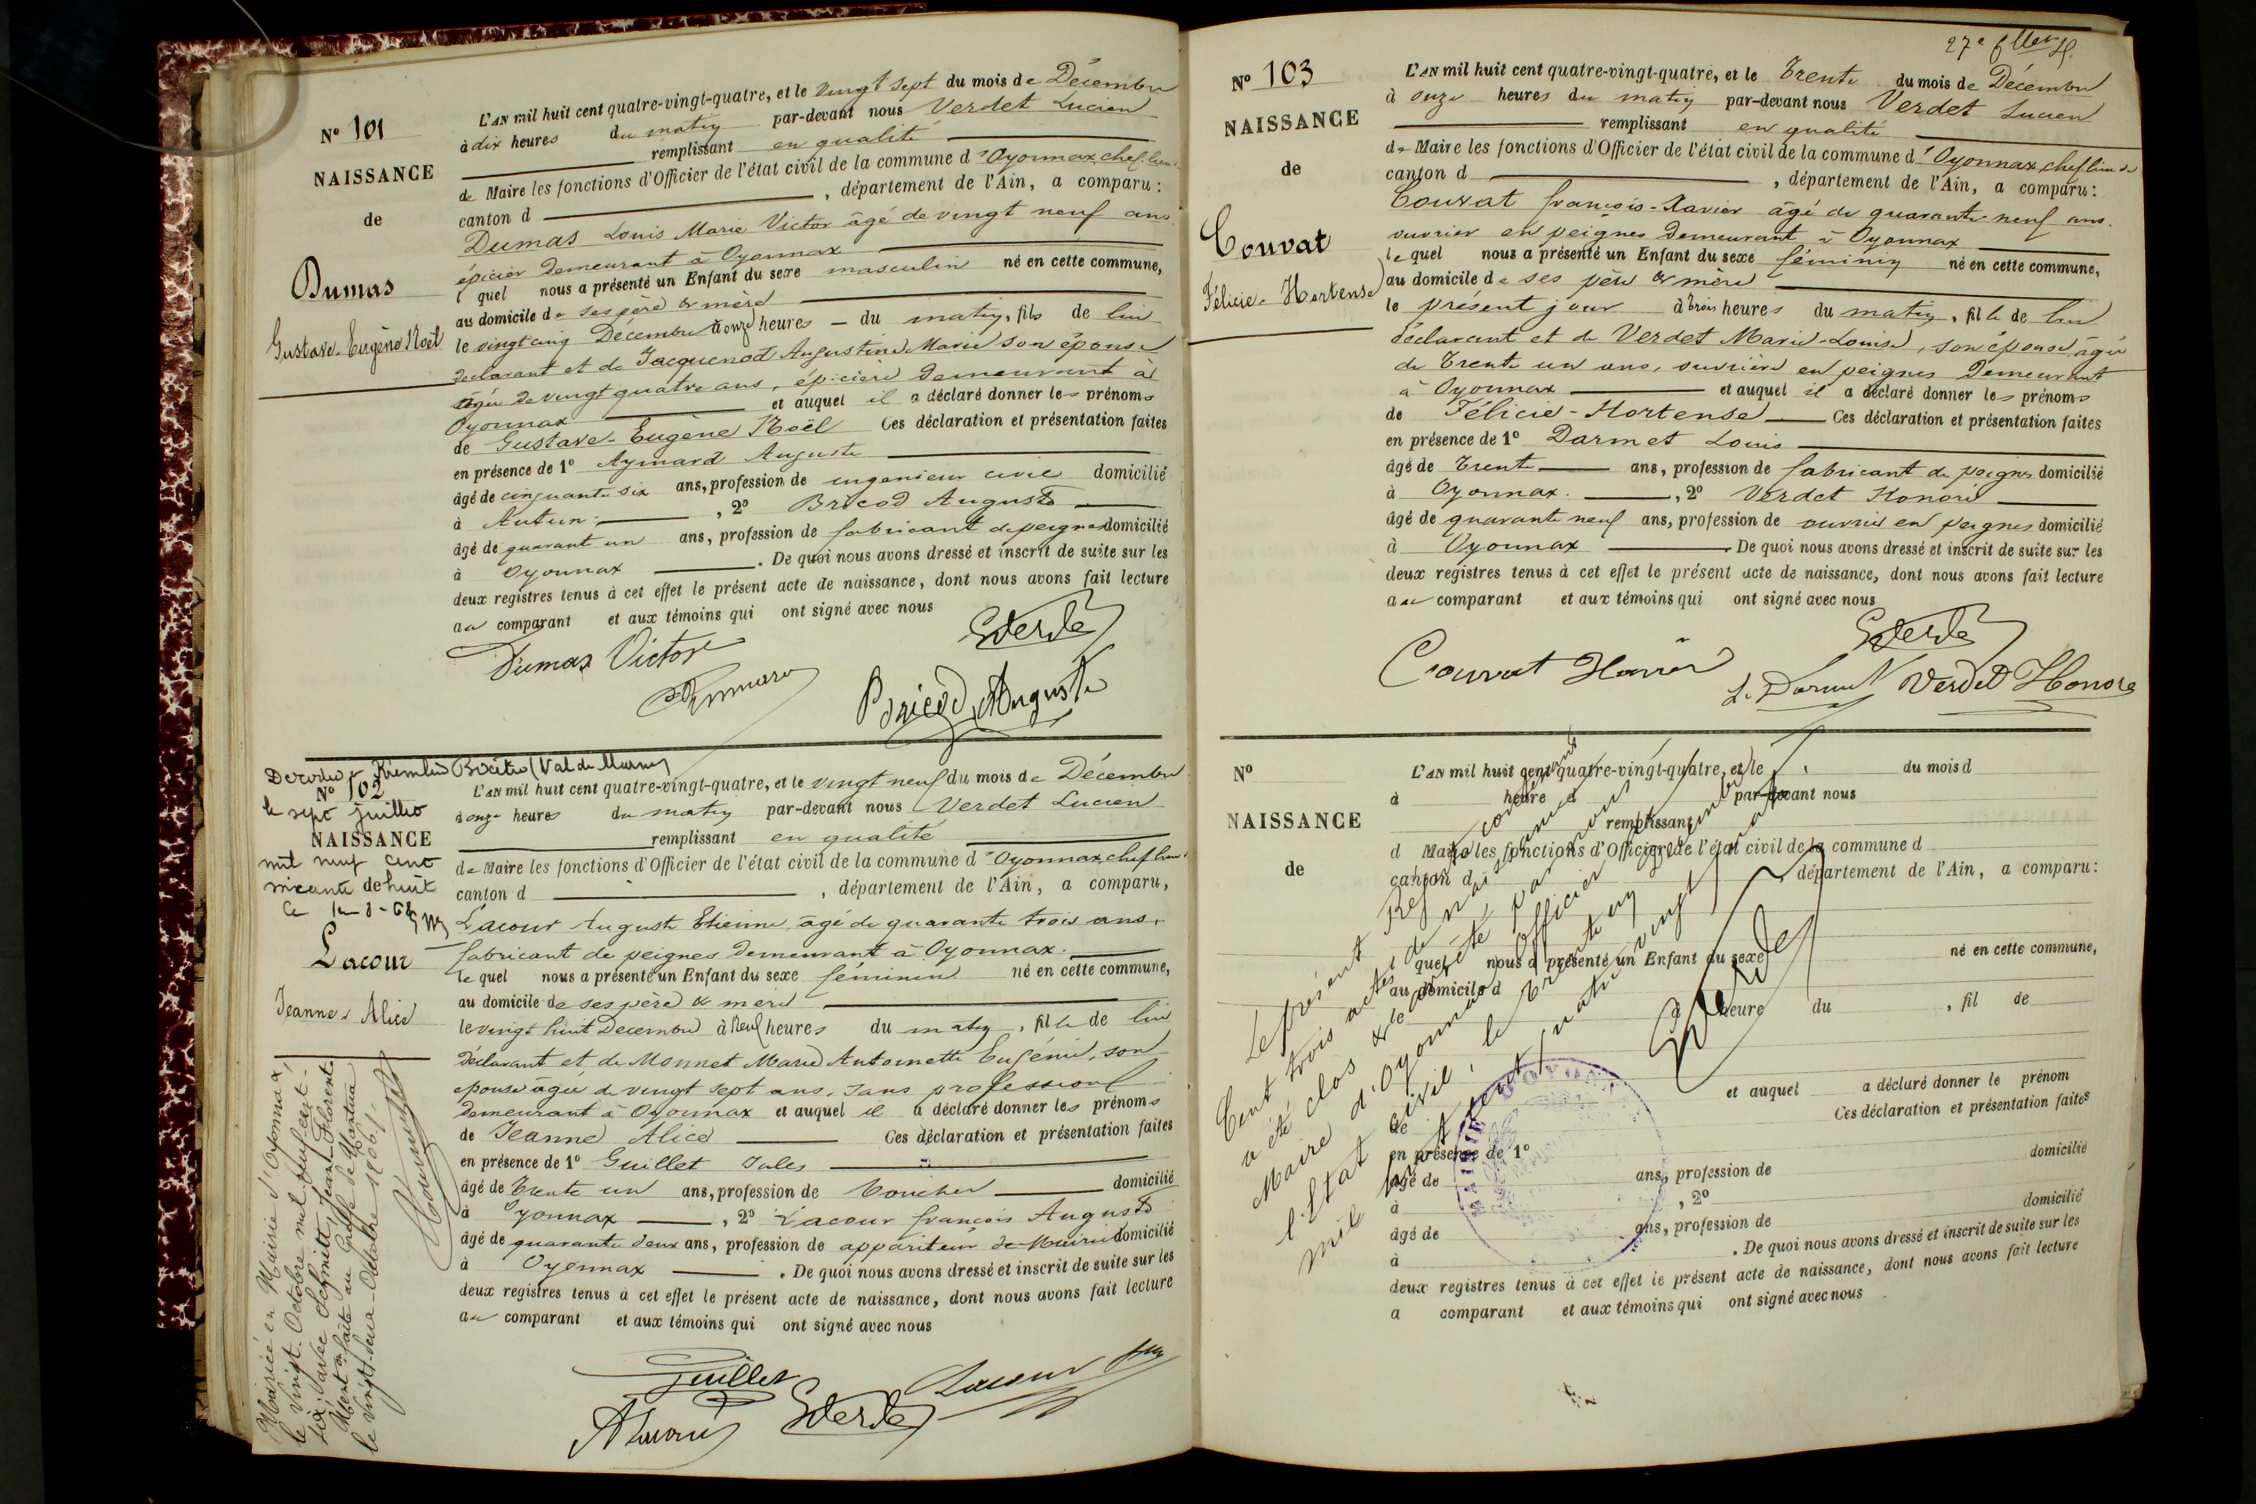 N° 101
NAISSANCE
de
Dumas
Gustave-Eugène Noël
L'AN mil huit cent quatre-vingt-quatre, et le vingt sept du mois de Décembre
à dix heures du matin par-devant nous Verdet Lucien
remplissant en qualité
de Maire les fonctions d'Officier de l'état civil de la commune d'Oyonnax, chef-lieu de
canton d , département de l'Ain, a comparu :
Dumas Louis Marie Victor âgé de vingt neuf ans
épicier demeurant à Oyonnax
quel nous a présenté un Enfant du sexe masculin né en cette commune,
au domicile de ses père & mère
le vingt cinq Décembre à onze heures du matin, fils de lui
déclarant et de Jacquenod Augustine Marie son épouse
âgée de vingt quatre ans, épicière demeurant à
Oyonnax et auquel il a déclaré donner les prénoms
de Gustave-Eugène Noël Ces déclaration et présentation faites
en présence de 1° Aymard Auguste
âgé de cinquante six ans, profession de ingenieur civil domicilié
à Autun, 2° Bricod Auguste
âgé de quarant un ans, profession de fabricant de peignes domicilié
à Oyonnax . De quoi nous avons dressé et inscrit de suite sur les
deux registres tenus à cet effet le présent acte de naissance, dont nous avons fait lecture
au comparant et aux témoins qui ont signé avec nous
Dumas Victor
Bricod Auguste
Décédée à Kremlin Bicêtre (Val de Marne)
N° 102
le sept juillet
NAISSANCE
mil neuf cent
soixante dehuit
Lacour
Jeanne Alice
Mariée en Mairie d'Oyonnax,
le vingt Octobre mil neuf cent-
six, avec Schmitt, Jean Florent.
Ment.on faite au Greffe de Nantua
le vingt-deux Octobre 1906.
L'AN mil huit cent quatre-vingt-quatre, et le vingt neuf du mois de Décembre
à onze heures du matin par-devant nous Verdet Lucien
remplissant en qualité
de Maire les fonctions d'Officier de l'état civil de la commune d'Oyonnax, chef lieu de
canton d , département de l'Ain, a comparu,
Lacour Auguste Etienne, âgé de quarante trois ans,
fabricant de peignes demeurant à Oyonnax.
le quel nous a présenté un Enfant du sexe féminin né en cette commune,
au domicile de ses père & mère
le vingt huit Decembre à Neuf heures du matin, fille de lui
déclarant et de Monnet Marie Antoinette Eugénie, son
epouse âgée de vingt sept ans, sans profession
demeurant à Oyonnax et auquel il a déclaré donner les prénoms
de Jeanne Alice Ces déclaration et présentation faites
en présence de 1° Guillet Jules
âgé de trente un ans, profession de boucher domicilié
à Oyonnax, 2° Lacour françois Auguste
âgé de quarante deux ans, profession de appariteur de Mairie domicilié
à Oyonnax . De quoi nous avons dressé et inscrit de suite sur les
deux registres tenus à cet effet le présent acte de naissance, dont nous avons fait lecture
au comparant et aux témoins qui ont signé avec nous
Guillet
Lacour
27e
N° 103
NAISSANCE
de
Couvat
Félicie-Hortense
L'AN mil huit cent quatre-vingt-quatre, et le trente du mois de Décembre
à onze heures du matin par-devant nous Verdet Lucien
remplissant en qualité
de Maire les fonctions d'Officier de l'état civil de la commune d'Oyonnax, chef lieu de
canton d , département de l'Ain, a comparu :
Couvat françois-Xavier âgé de quarante-neuf ans.
ouvrier en peignes demeurant à Oyonnax
le quel nous a présenté un Enfant du sexe féminin né en cette commune,
au domicile de ses père & mère
le présent jour à trois heures du matin, fille de lui
déclarant et de Verdet Marie-Louise, son épouse âgée
de trente un ans, ouvrière en peignes demeurant
à Oyonnax et auquel il a déclaré donner les prénoms
de Félicie-Hortense Ces déclaration et présentation faites
en présence de 1° Darmet Louis
âgé de trente ans, profession de fabricant de peignes domicilié
à Oyonnax. , 2° Verdet Honoré
âgé de quarante neuf ans, profession de ouvrier en peignes domicilié
à Oyonnax . De quoi nous avons dressé et inscrit de suite sur les
deux registres tenus à cet effet le présent acte de naissance, dont nous avons fait lecture
au comparant et aux témoins qui ont signé avec nous
Couvat
L. Darmet Verdet Honoré
N°
NAISSANCE
de
L'AN mil huit cent quatre-vingt-quatre, et le du mois d
à heure d par-devant nous
remplissant
d Maire les fonctions d'Officier de l'état civil de la commune d
canton d , département de l'Ain, a comparu :
quel nous a présenté un Enfant du sexe né en cette commune,
au domicile d
à heure du , fil de
et auquel a déclaré donner le prénom
de Ces déclaration et présentation faites
en présence de 1°
âgé de ans, profession de domicilié
à , 2°
âgé de ans, profession de domicilié
à . De quoi nous avons dressé et inscrit de suite sur les
deux registres tenus à cet effet le présent acte de naissance, dont nous avons fait lecture
a comparant et aux témoins qui ont signé avec nous
Le présent Registre contenant
Cent trois actes de naissance
a été clos & arrêté par nous
Maire d'Oyonnax Officier de
l'Etat civil, le trente un Décembre
mil huit cent quatre vingt quatre
MAIRIE D'OYONNAX